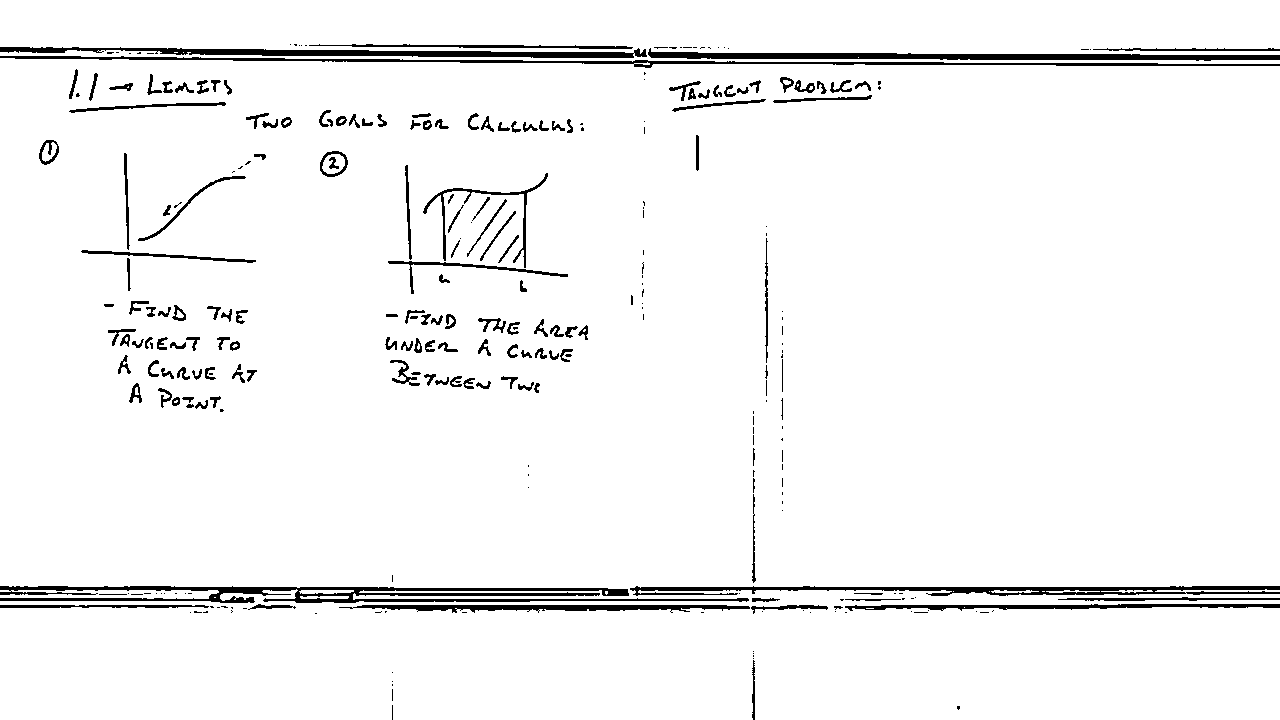 1.1 → LIMITS
TWO GOALS FOR CALCULUS:
①
- FIND THE
TANGENT TO
A CURVE AT
A POINT.
②
a b
- FIND THE AREA
UNDER A CURVE
BETWEEN TWO
TANGENT PROBLEM: